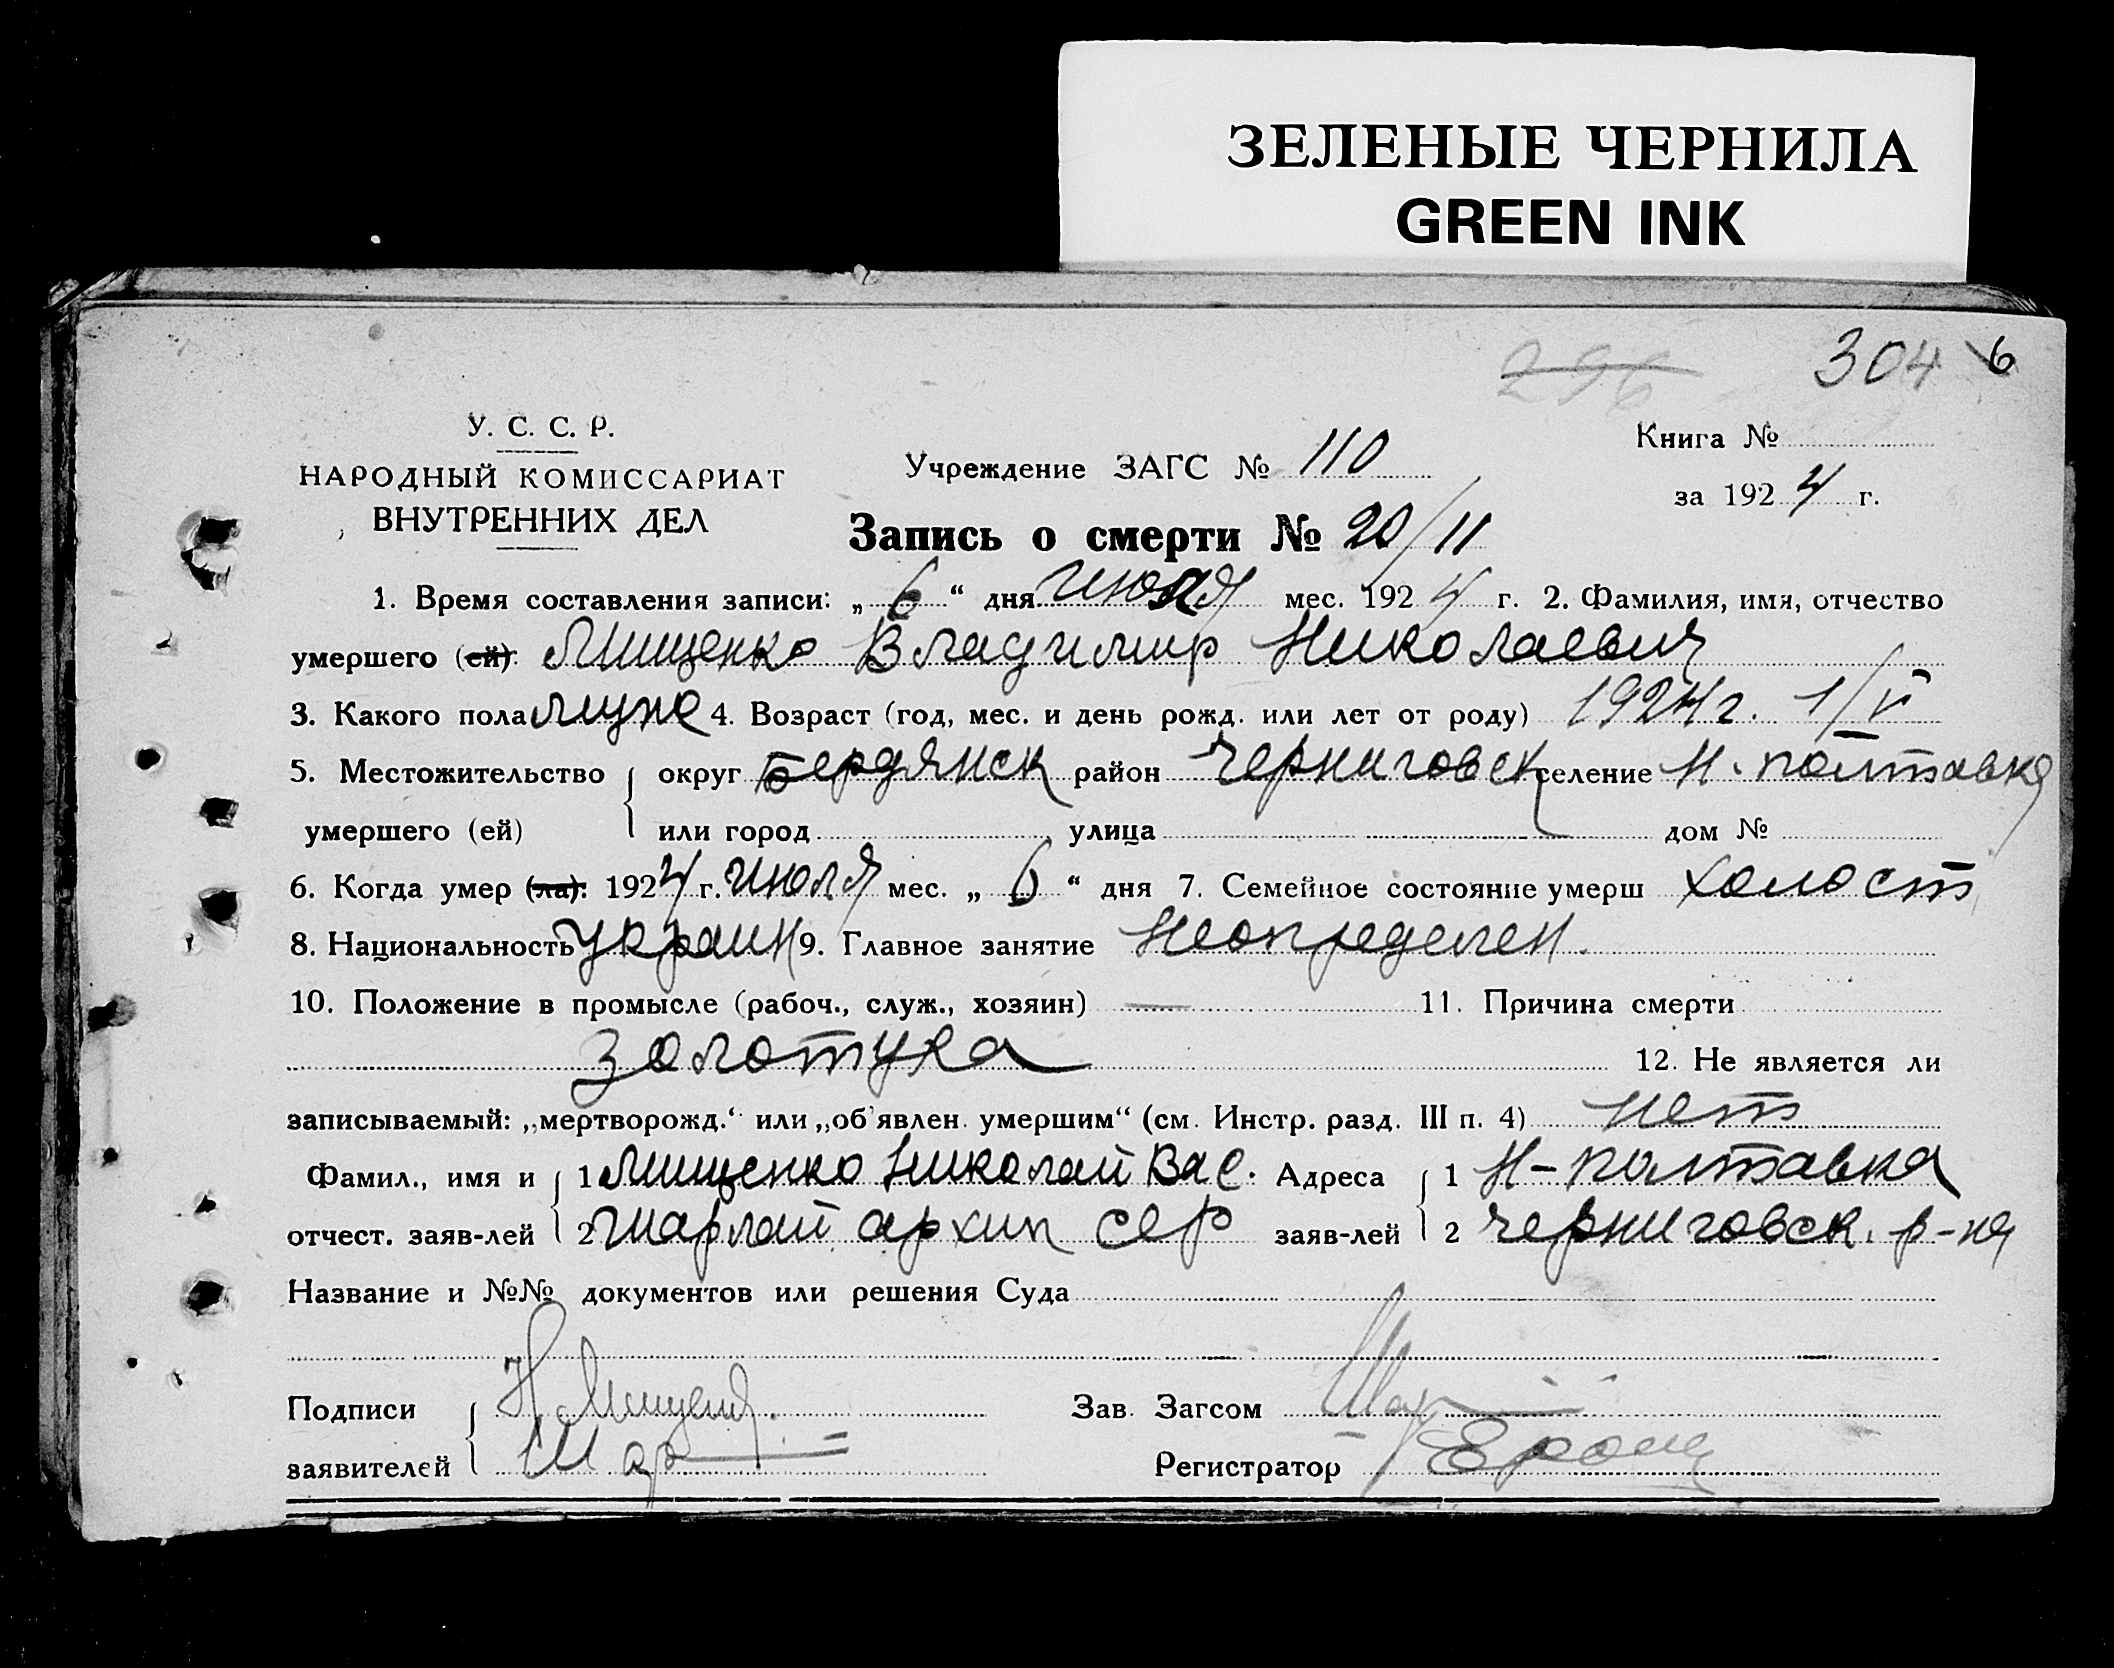 ЗЕЛЕНЫЕ ЧЕРНИЛА
GREEN INK
296 304 6
У. С. С. Р.
НАРОДНЫЙ КОМИССАРИАТ
ВНУТРЕННИХ ДЕЛ
Учреждение ЗАГС № 110
Книга №
за 1924 г.
Запись о смерти № 20/11
1. Время составления записи: „6“ дня июля мес. 1924 г. 2. Фамилия, имя, отчество
умершего (ей): Мищенко Владимир Николаевич
3. Какого пола муж 4. Возраст (год, мес. и день рожд. или лет от роду) 1924 г. 1/V
5. Местожительство округ Бердянск район Черниговск селение Н. Полтавка
умершего (ей) или город улица дом №
6. Когда умер (ла): 1924 г. июля мес. „6“ дня 7. Семейное состояние умерш холост
8. Национальность украин 9. Главное занятие Неопределен.
10. Положение в промысле (рабоч., служ., хозяин) — 11. Причина смерти
золотуха 12. Не является ли
записываемый: „мертворожд.“ или „об'явлен. умершим“ (см. Инстр. разд. III п. 4) нет
Фамил., имя и 1 Мищенко Николай Вас. Адреса 1 Н-Полтавка
отчест. заяв-лей 2 Шарлай Архип Сер заяв-лей 2 Черниговск. р-на
Название и №№ документов или решения Суда
Подписи Н. Мищенк Зав. Загсом Шар
заявителей Шар Регистратор